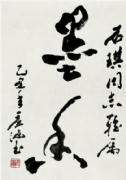 石琪同志雅属
墨香
乙丑年